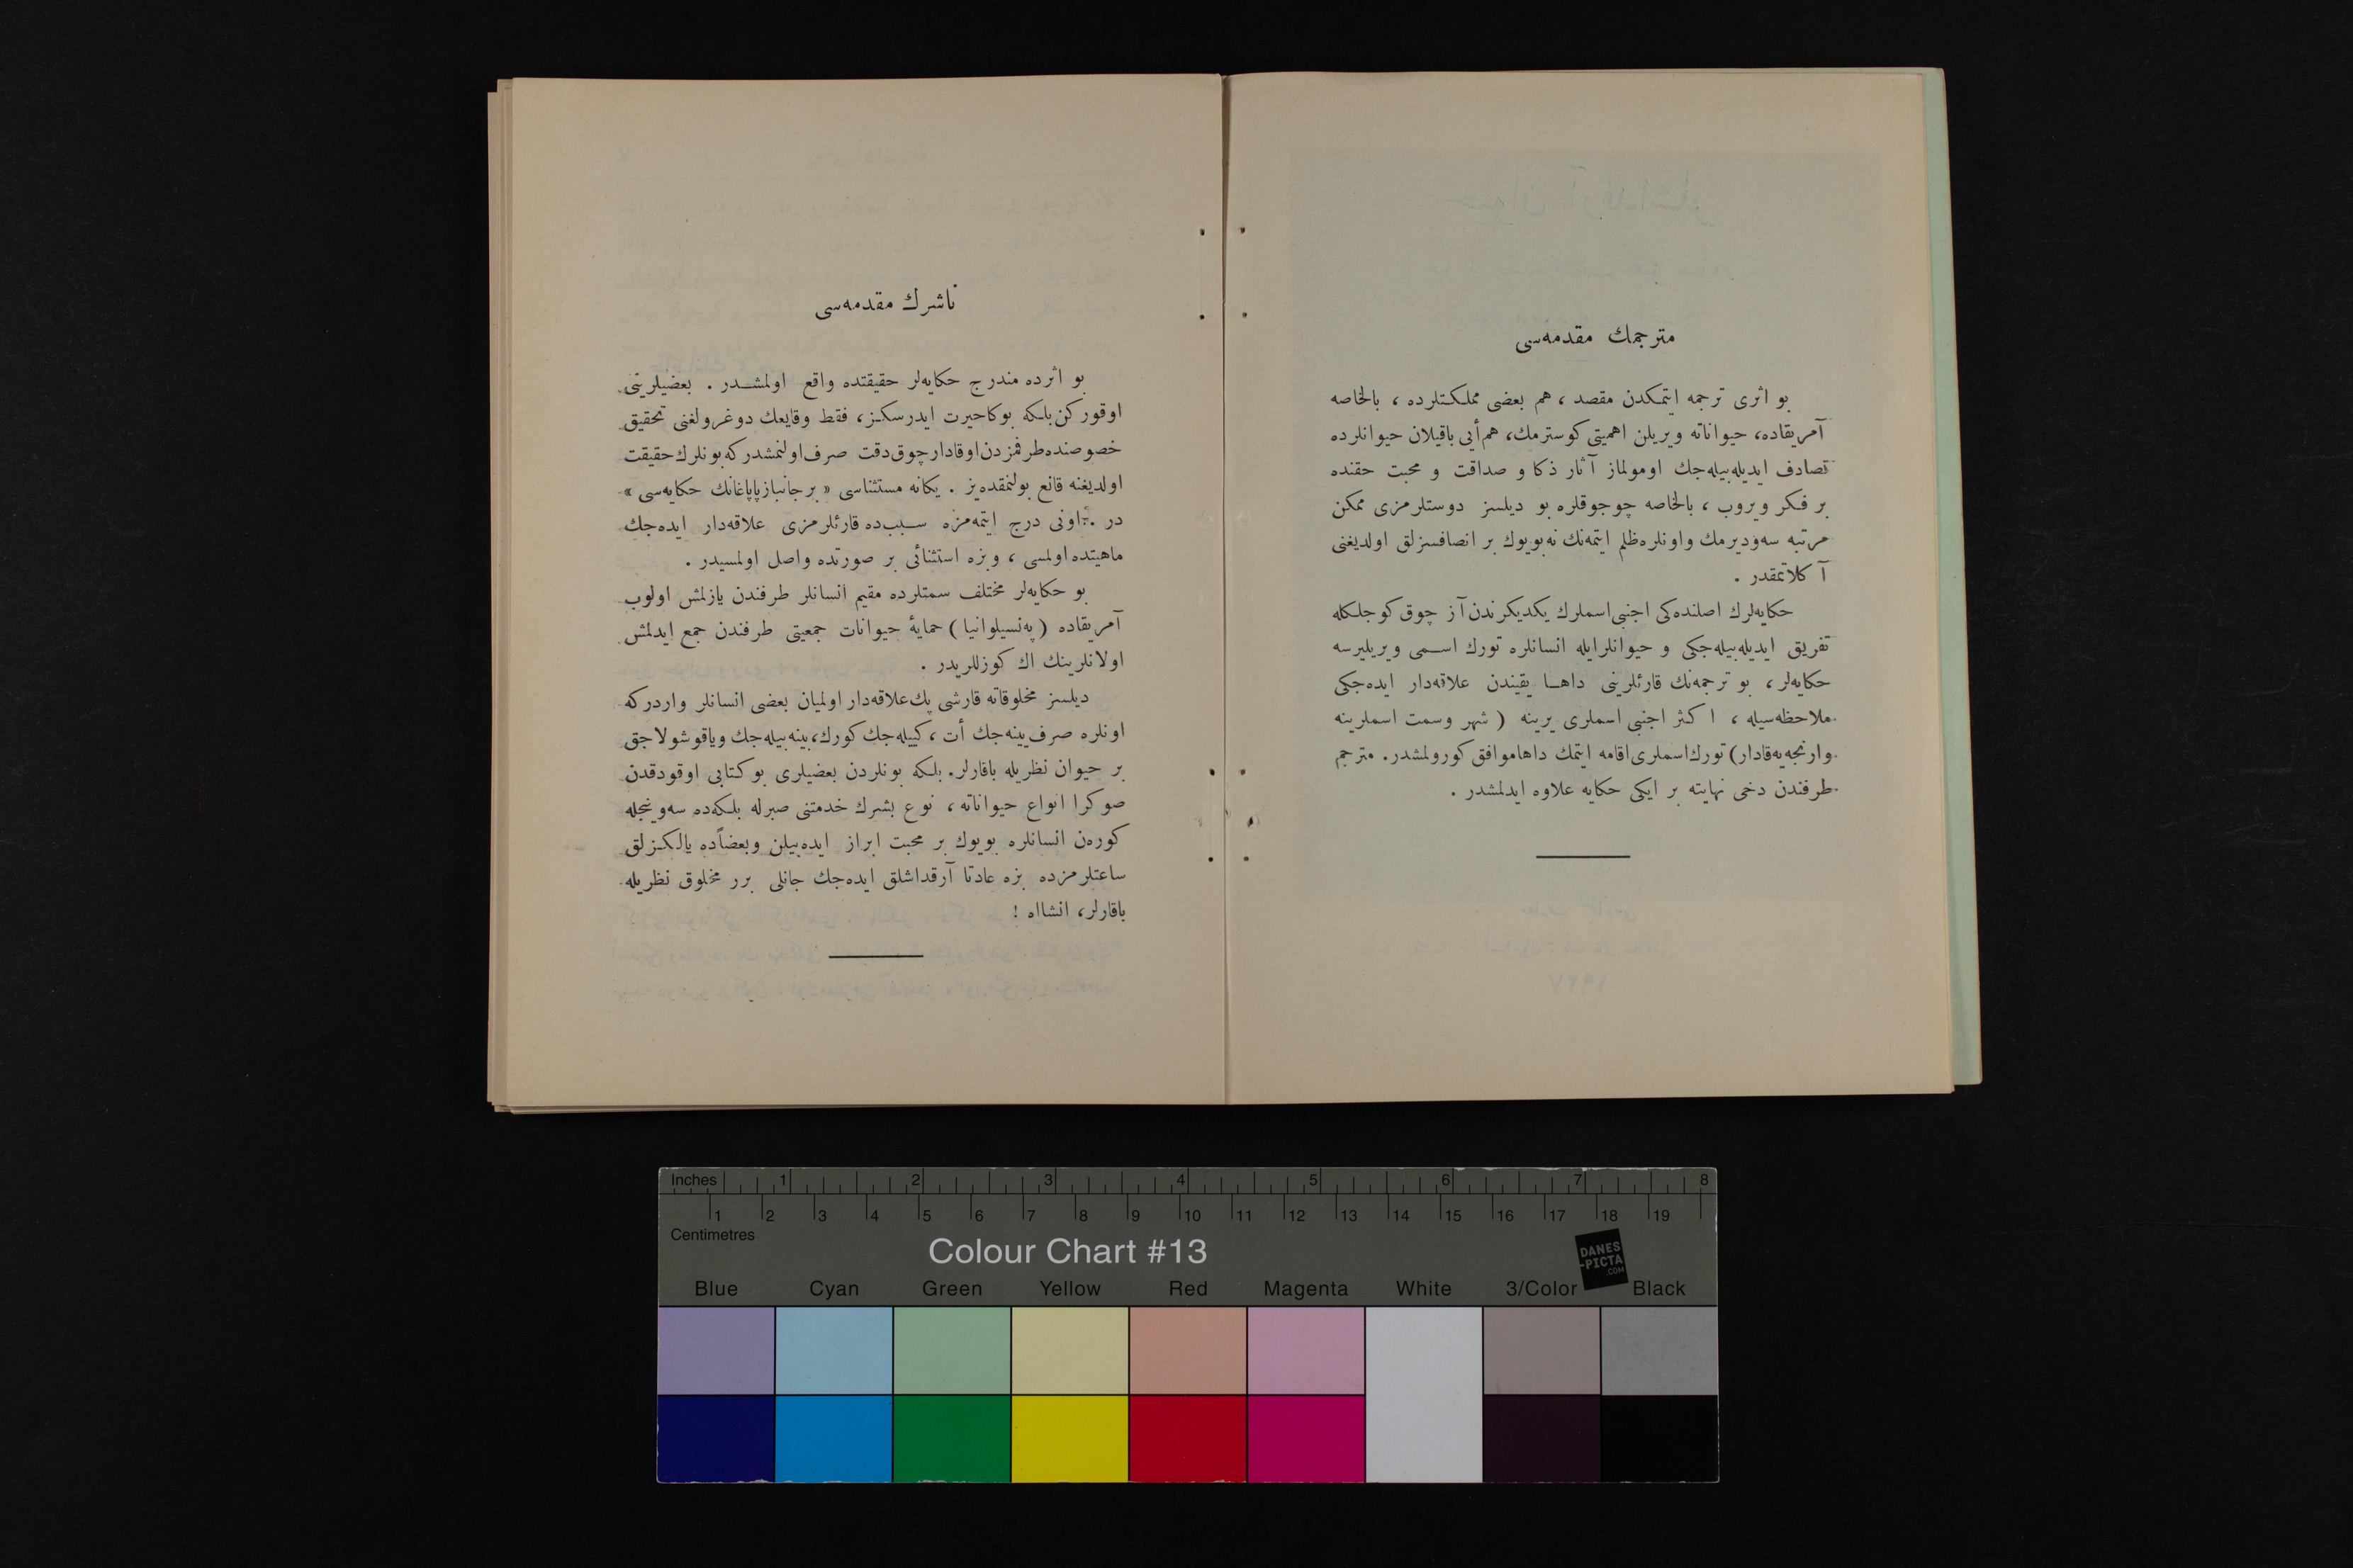 مترجمك مقدمه‌سی
بو اثری ترجمه ایتمكدن مقصد ، هم بعضی مملكتلرده ، بالخاصه
آمریقاده، حیواناته ویریلن اهمیتی كوسترمك، هم أیی باقیلان حیوانلرده
تصادف ایدیله‌بیله‌جك اومولماز آثار ذكا و صداقت و محبت حقنده
بر فكر ویروب ، بالخاصه چوجوقلره بو دیلسز دوستلرمزی ممكن
مرتبه سه‌ودیرمك واونلره ظلم ایتمه‌نك نه‌بویوك بر انصافسزلق اولدیغنی
آ كلاتمقدر .
حكایه‌لرك اصلنده‌كی اجنبی اسملرك یكدیكرندن آز چوق كوجلكله
تفریق ایدیله‌بیله‌جكی و حیوانلرایله انسانلره تورك اسمی ویریلیرسه
حكایه‌لر، بو ترجمه‌نك قارئلرینی داها یقیندن علاقه‌دار ایده‌جكی
ملاحظه‌سیله ، اكثر اجنبی اسملری یرینه ( شهر وسمت اسملرینه
وارنجه‌یه‌قادار) تورك‌اسملری اقامه ایتمك داهاموافق كورولمشدر. مترجم
طرفندن دخی نهایته بر ایكی حكایه علاوه ایدلمشدر .
ناشرك مقدمه‌سی
بو اثرده مندرج حكایه‌لر حقیقتده واقع اولمشدر . بعضیلرینی
اوقوركن بلكه بوكاحیرت ایدرسكز، فقط وقایعك دوغرولغنی تحقیق
خصوصنده طرفمزدن اوقادار چوق دقت صرف اولنمشدركه بونلرك حقیقت
اولدیغنه قانع بولنمقده‌یز . یكانه مستثناسی « بر جانباز پاپاغانك حكایه‌سی »
در . اونی درج ایتمه‌مزه سبب‌ده قارئلرمزی علاقه‌دار ایده‌جك
ماهیتده اولمسی ، وبزه استثنائی بر صورتده واصل اولمسیدر .
بو حكایه‌لر مختلف سمتلرده مقیم انسانلر طرفندن یازلمش اولوب
آمریقاده ( په‌نسیلوانیا ) حمایهٔ حیوانات جمعیتی طرفندن جمع ایدلمش
اولانلرینك اك كوزللریدر .
دیلسز مخلوقاته قارشی پك علاقه‌دار اولمیان بعضی انسانلر واردركه
اونلره صرف یینه‌جك أت ، كییله‌جك كورك، بینه‌بیله‌جك ویاقوشولاجق
بر حیوان نظریله باقارلر. بلكه بونلردن بعضیلری بو كتابی اوقودقدن
صوكرا انواع حیواناته ، نوع بشرك خدمتنی صبرله بلكه‌ده سه‌وینجله
كوره‌ن انسانلره بویوك بر محبت ابراز ایده‌بیلن وبعضاًده یالكزلق
ساعتلرمزده بزه عادتا آرقداشلق ایده‌جك جانلی برر مخلوق نظریله
باقارلر، انشااه !
Inches 1 2 3 4 5 6 7 8
1 2 3 4 5 6 7 8 9 10 11 12 13 14 15 16 17 18 19
Centimetres
Colour Chart #13
DANES
-PICTA
.COM
Blue Cyan Green Yellow Red Magenta White 3/Color Black